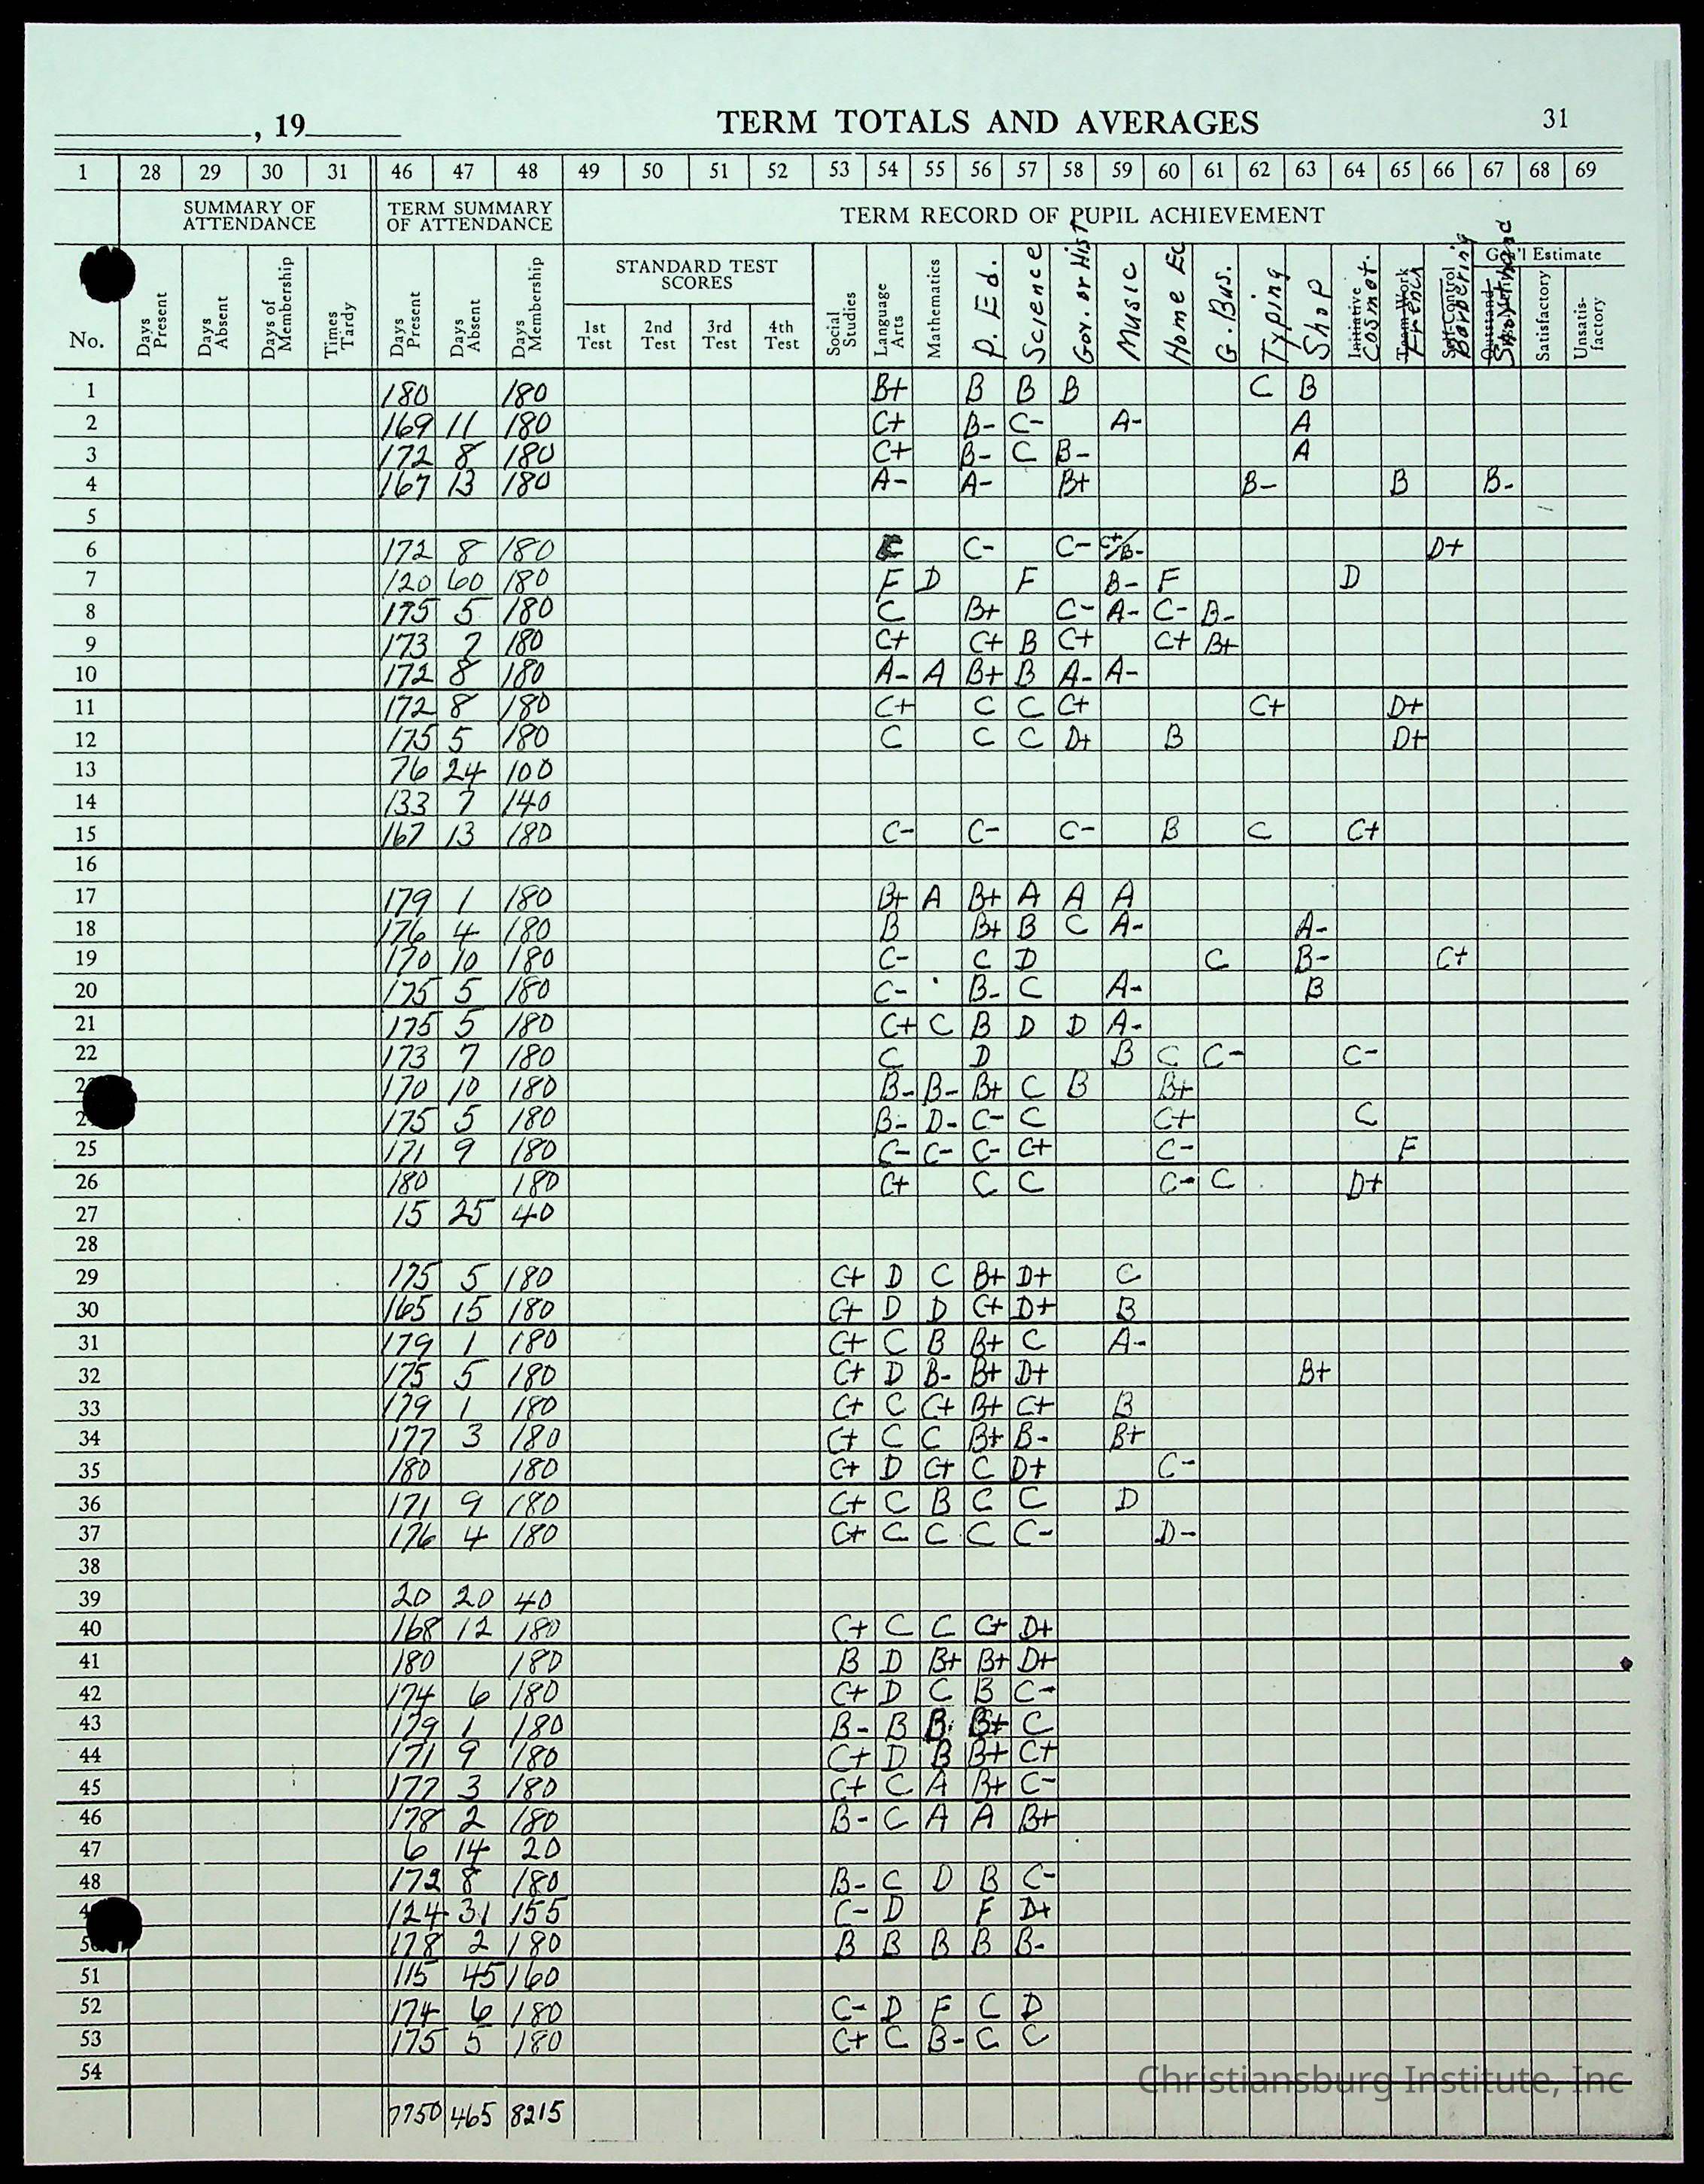 , 19 TERM TOTALS AND AVERAGES 31
1 28 29 30 31 46 47 48 49 50 51 52 53 54 55 56 57 58 59 60 61 62 63 64 65 66 67 68 69
SUMMARY OF ATTENDANCE TERM SUMMARY OF ATTENDANCE TERM RECORD OF PUPIL ACHIEVEMENT
STANDARD TEST SCORES Gen'l Estimate
No. Days Present Days Absent Days of Membership Times Tardy Days Present Days Absent Days Membership 1st Test 2nd Test 3rd Test 4th Test Social Studies Language Arts Mathematics P. Ed. Science Gov. or Hist Music Home Ec G. Bus. Typing Shop Initiative Cosmot. Team Work French Self-Control Barbering Shorthand Satisfactory Unsatis-factory
1 180 180 B+ B B B C B
2 169 11 180 C+ B- C- A- A
3 172 8 180 C+ B- C B- A
4 167 13 180 A- A- B+ B- B B-
5
6 172 8 180 C- C- C+/B- D+
7 120 60 180 F D F B- F D
8 175 5 180 C B+ C- A- C- B-
9 173 7 180 C+ C+ B C+ C+ B+
10 172 8 180 A- A B+ B A- A-
11 172 8 180 C+ C C C+ C+ D+
12 175 5 180 C C C D+ B D+
13 76 24 100
14 133 7 140
15 167 13 180 C- C- C- B C C+
16
17 179 1 180 B+ A B+ A A A
18 176 4 180 B B+ B C A- A-
19 170 10 180 C- C D C B- C+
20 175 5 180 C- B- C A- B
21 175 5 180 C+ C B D D A-
22 173 7 180 C D B C C- C-
2 170 10 180 B- B- B+ C B B+
2 175 5 180 B- D- C- C C+ C
25 171 9 180 C- C- C- C+ C- F
26 180 180 C+ C C C- C D+
27 15 25 40
28
29 175 5 180 C+ D C B+ D+ C
30 165 15 180 C+ D D C+ D+ B
31 179 1 180 C+ C B B+ C A-
32 175 5 180 C+ D B- B+ D+ B+
33 179 1 180 C+ C C+ B+ C+ B
34 177 3 180 C+ C C B+ B- B+
35 180 180 C+ D C+ C D+ C-
36 171 9 180 C+ C B C C D
37 176 4 180 C+ C C C C- D-
38
39 20 20 40
40 168 12 180 C+ C C C+ D+
41 180 180 B D B+ B+ D+
42 174 6 180 C+ D C B C-
43 179 1 180 B- B B B+ C
44 171 9 180 C+ D B B+ C+
45 177 3 180 C+ C A B+ C-
46 178 2 180 B- C A A B+
47 6 14 20
48 172 8 180 B- C D B C-
4 124 31 155 C- D F D+
50 178 2 180 B B B B B-
51 115 45 160
52 174 6 180 C- D F C D
53 175 5 180 C+ C B- C C
54
Christiansburg Institute, Inc
7750 465 8215